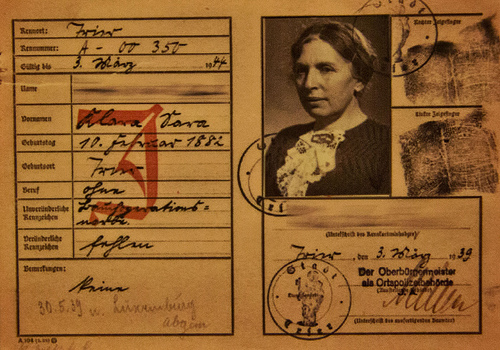 Kennort: Trier
Kennummer: A - 00 350
Gültig bis 3. März 1944
Name
Vornamen Klara Sara
Geburtstag 10. Februar 1882
Geburtsort Trier
Beruf ohne
Unveränderliche Kennzeichen Blinddarmoperations=
narbe.
Veränderliche Kennzeichen fehlen
Bemerkungen:
keine
30.5.39 n. Luxemburg
abgem
J
Rechter Zeigefinger
Linker Zeigefinger
(Unterschrift des Kennkarteninhabers)
Trier, den 3. März 1939
Der Oberbürgermeister
als Ortspolizeibehörde
(Unterschrift des ausfertigenden Beamten)
Stadt